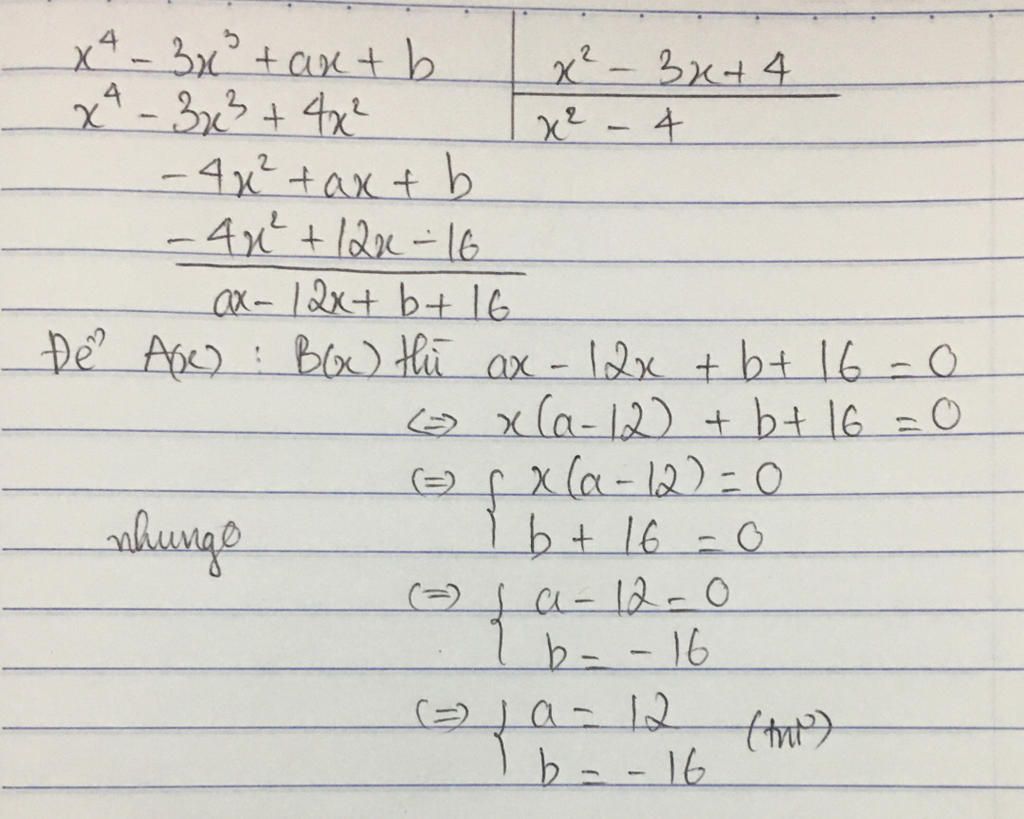 x⁴ - 3x³ + ax + b | x² - 3x + 4
x⁴ - 3x³ + 4x² | x² - 4
- 4x² + ax + b
- 4x² + 12x - 16
ax - 12x + b + 16
Để A(x) : B(x) thì ax - 12x + b + 16 = 0
<=> x(a - 12) + b + 16 = 0
<=> { x(a - 12) = 0
nhungo { b + 16 = 0
<=> { a - 12 = 0
{ b = - 16
<=> { a = 12
{ b = - 16